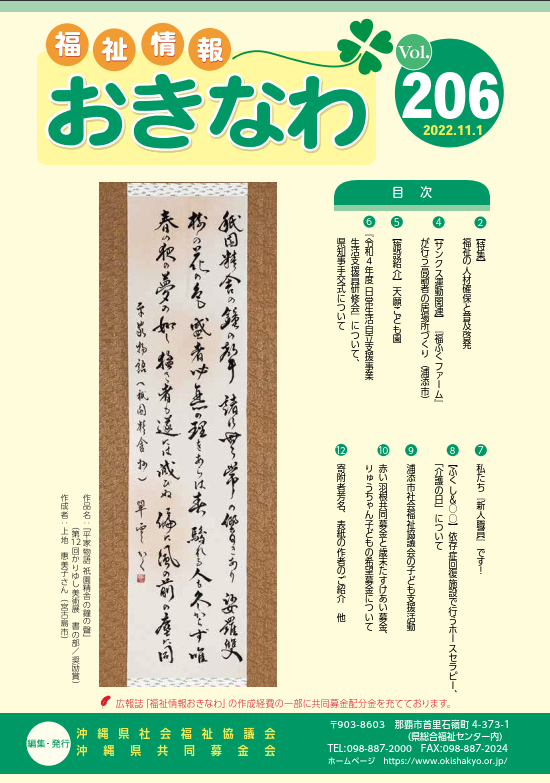 福祉情報
おきなわ
Vol.
206
2022.11.1
目 次
2 【特集】
福祉の人材確保と普及啓発
4 【サンクス運動関連】『福ふくファーム』
が行う高齢者の居場所づくり（浦添市）
5 【施設紹介】天願こども園
6 『令和4年度 日常生活自立支援事業
生活支援員研修会』について、
県知事手交式について
7 私たち『新人職員』です！
8 【ふくし&〇〇】依存症回復施設で行うホースセラピー、
「介護の日」について
9 浦添市社会福祉協議会の子ども支援活動
10 赤い羽根共同募金と歳末たすけあい募金、
りゅうちゃん子どもの希望募金について
12 寄附者芳名、表紙の作者のご紹介 他
祇園精舎の鐘の声 諸行無常の響きあり 娑羅双
樹の花の色 盛者必無の理をあらは春 驕れる人も久しからず唯
春の夜の夢の如し 猛き者も遂には滅びぬ 偏に風の前の塵に同
平家物語（祇園精舎抄） 翠雲かく
作品名：「平家物語 祇園精舎の鐘の聲」
（第12回かりゆし美術展 書の部／奨励賞）
作成者：上地 恵美子さん（宮古島市）
広報誌「福祉情報おきなわ」の作成経費の一部に共同募金配分金を充てております。
編集・発行
沖縄県社会福祉協議会
沖縄県共同募金会
〒903-8603 那覇市首里石嶺町 4-373-1
（県総合福祉センター内）
TEL:098-887-2000 FAX:098-887-2024
ホームページ https://www.okishakyo.or.jp/